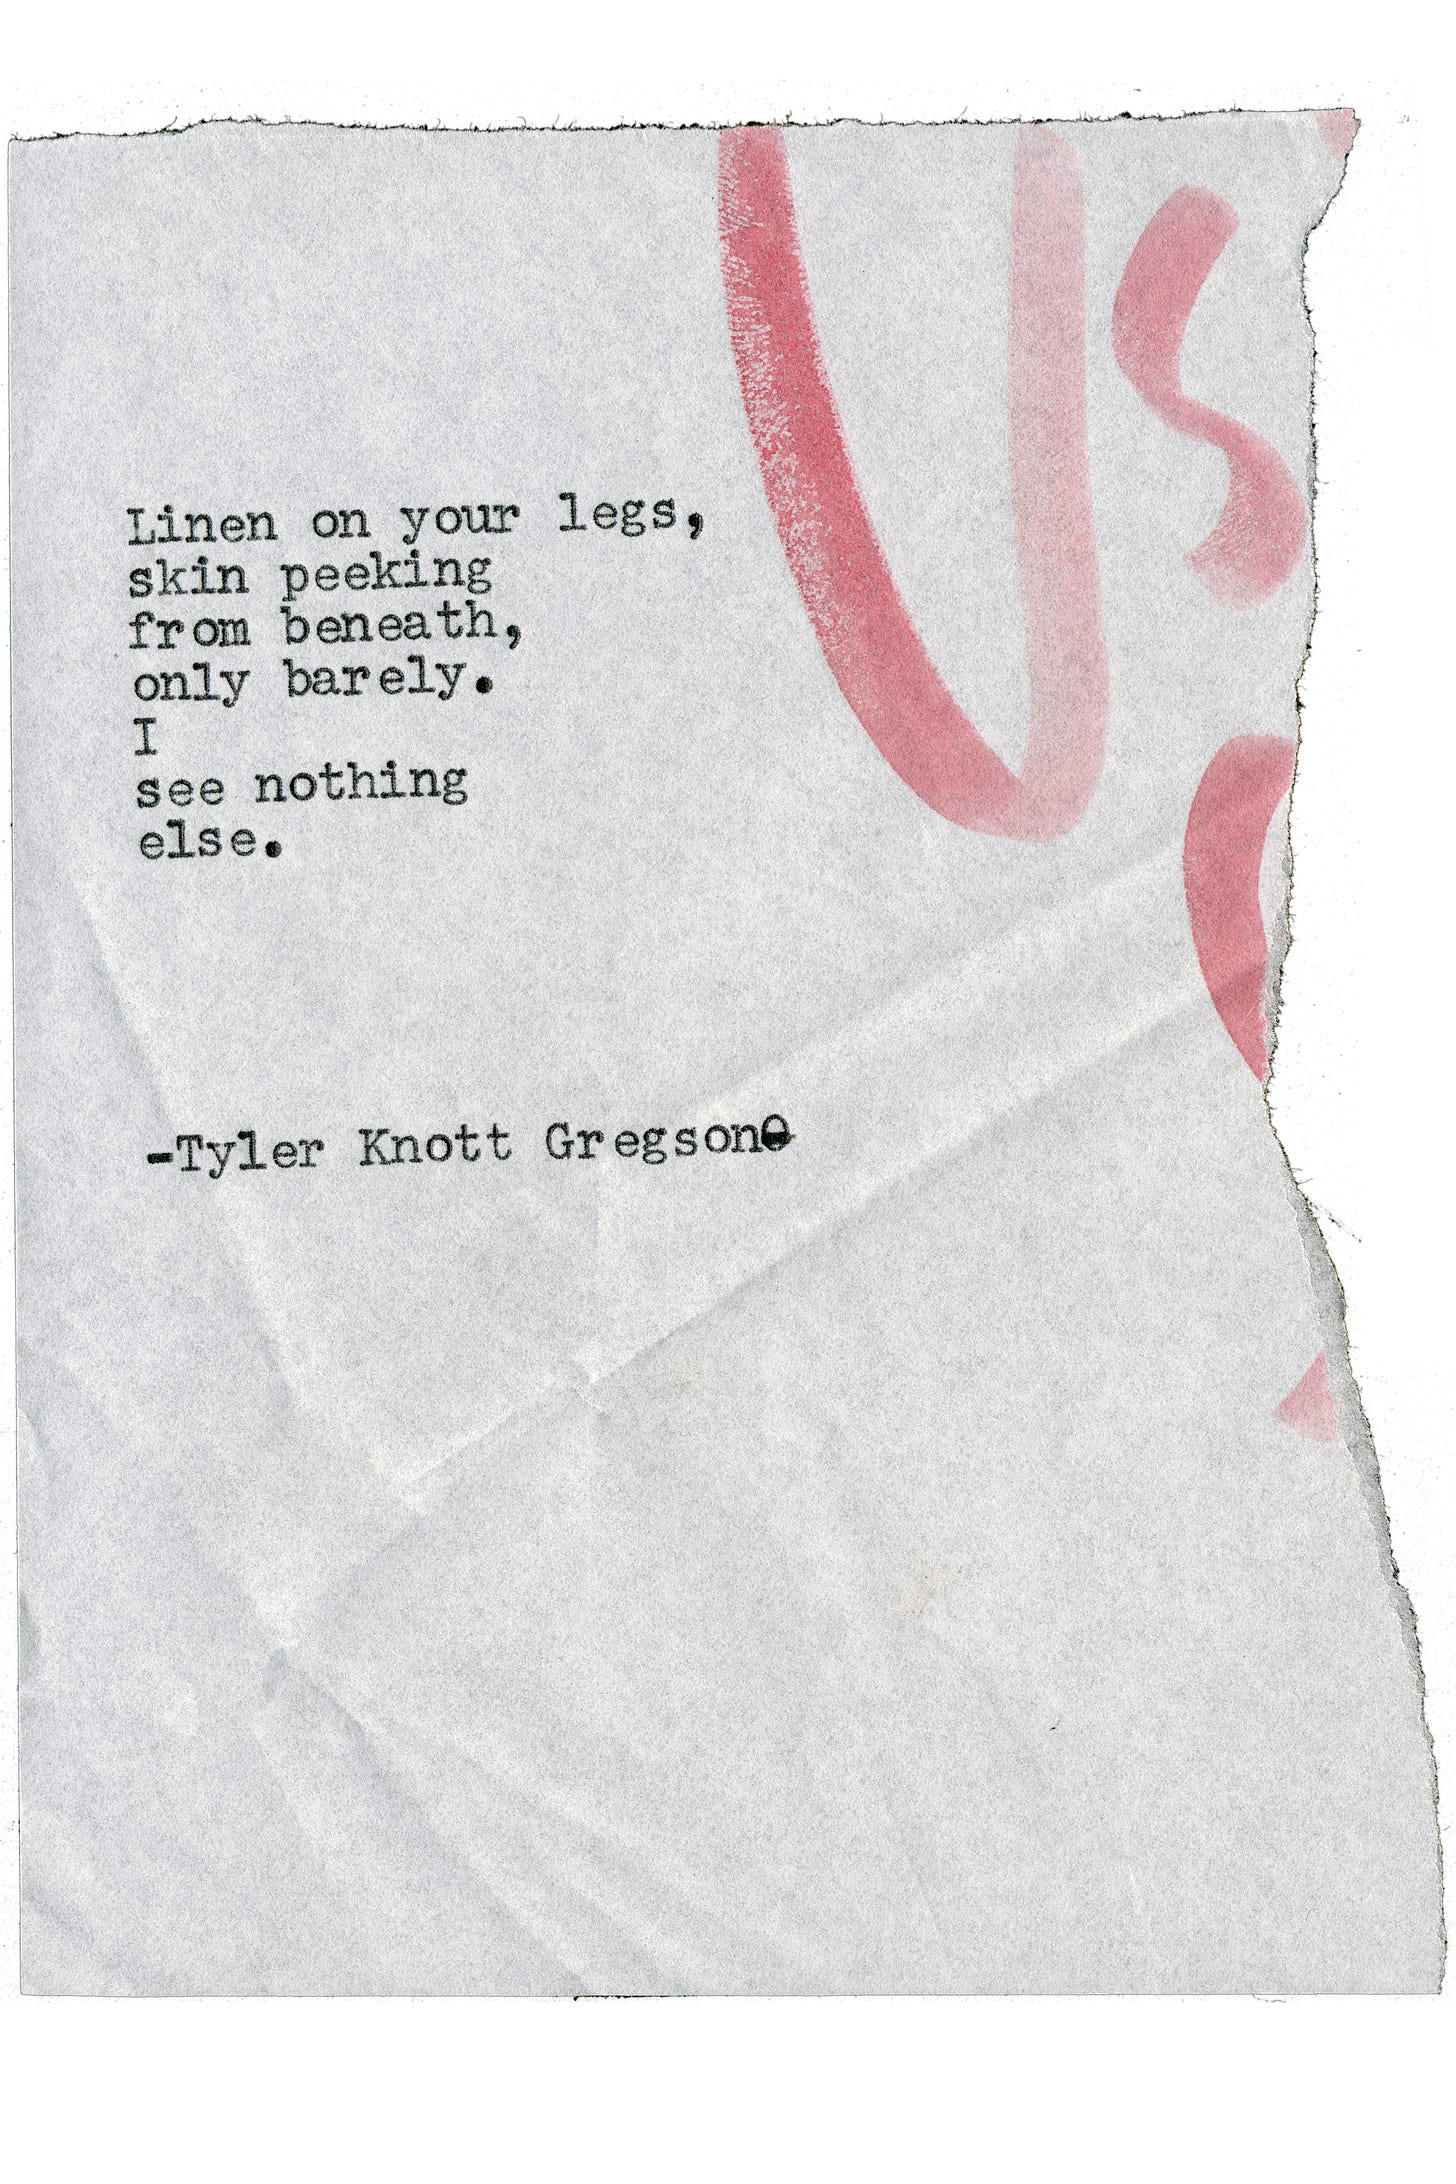 Linen on your legs,
skin peeking
from beneath,
only barely.
I
see nothing
else.
-Tyler Knott Gregson